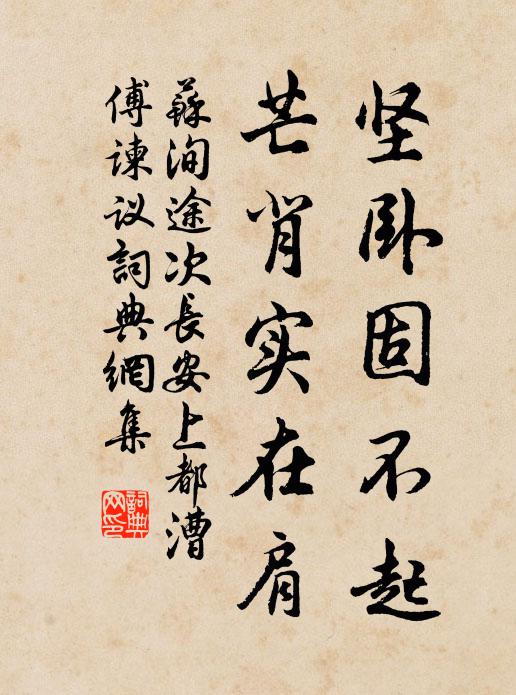 坚卧固不起
芒背实在肩
蘇洵途次長安上都漕
傅諫议詞典網集
詞典网印